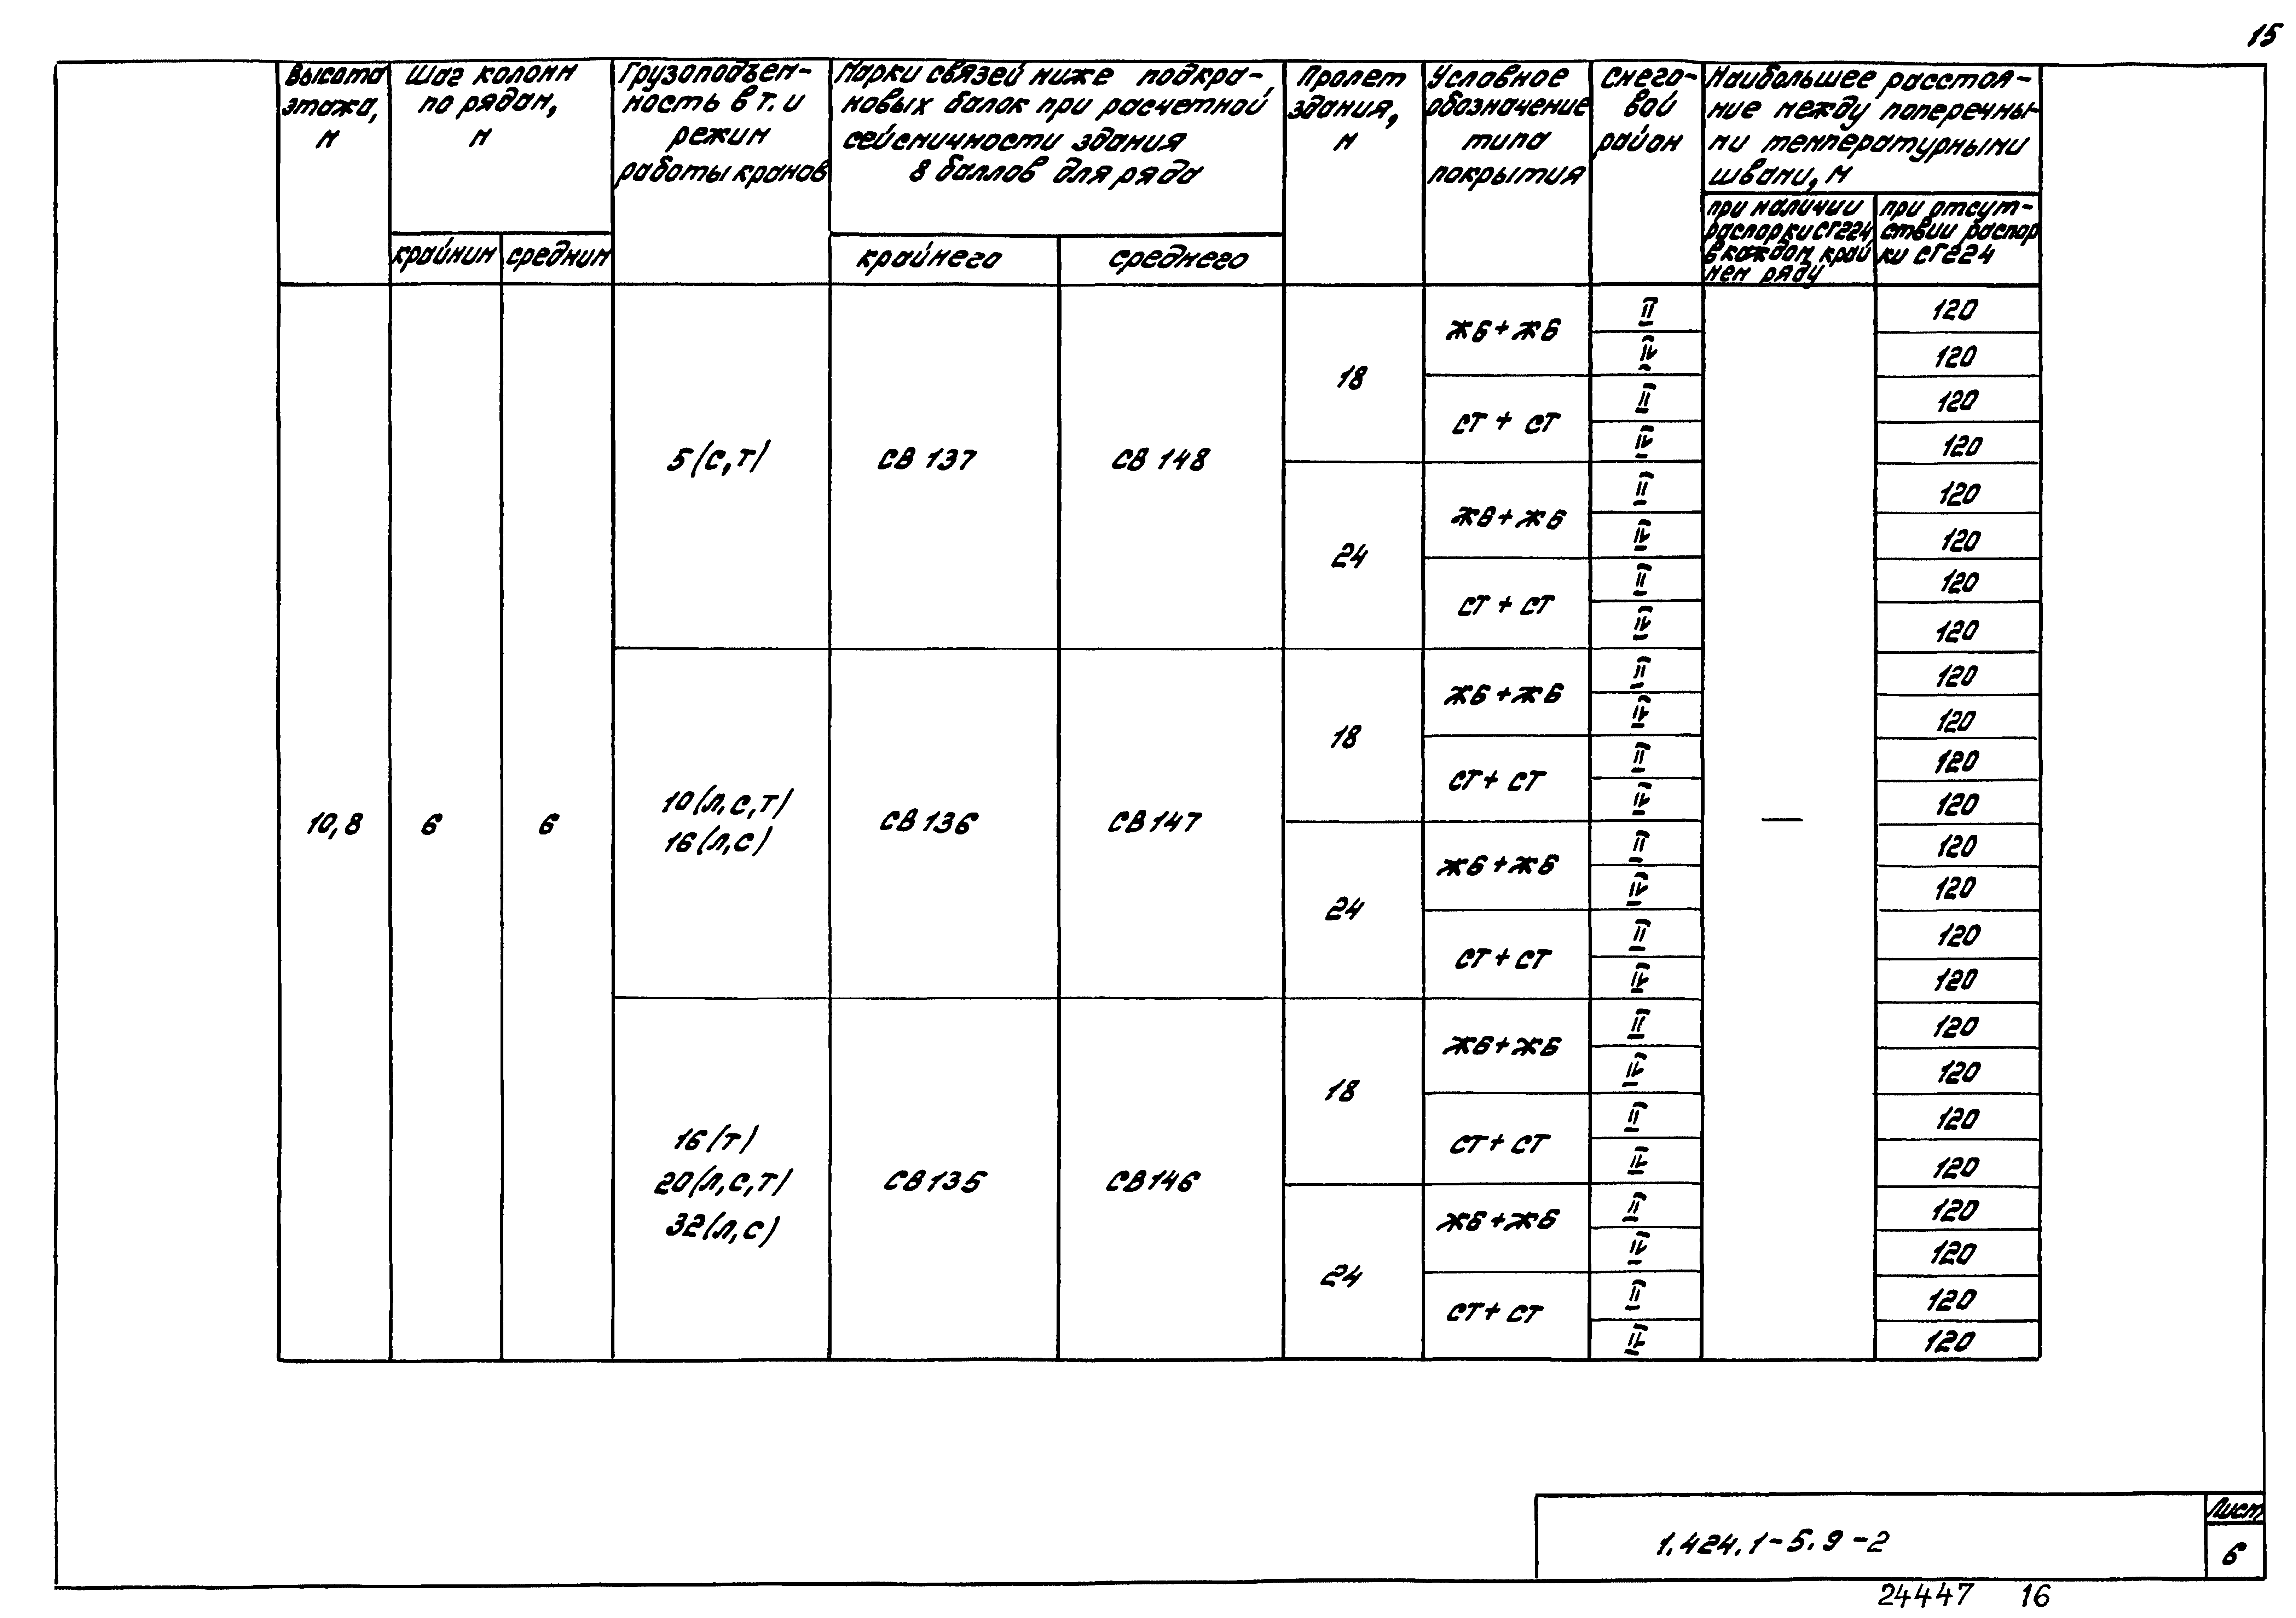 15
Высота этажа, м
Шаг колонн по рядам, м
крайним
средним
Грузоподъем-
ность в т. и
режим
работы кранов
Марки связей ниже подкра-
новых балок при расчетной
сейсмичности здания
8 баллов для ряда
крайнего
среднего
Пролет
здания,
м
Условное
обозначение
типа
покрытия
Снего-
вой
район
Наибольшее расстоя-
ние между поперечны-
ми температурными
швами, м
при наличии
распорки СГ224
в каждом край
нем ряду
при отсут-
ствии распор
ки СГ224
10,8
6
6
5(С,Т)
СВ 137
СВ 148
18
ЖБ + ЖБ
II
120
IV
120
СТ + СТ
II
120
IV
120
24
ЖБ + ЖБ
II
120
IV
120
СТ + СТ
II
120
IV
120
10(Л,С,Т)
16(Л,С)
СВ136
СВ147
18
ЖБ + ЖБ
II
120
IV
120
СТ + СТ
II
120
IV
120
—
24
ЖБ + ЖБ
II
120
IV
120
СТ + СТ
II
120
IV
120
16(Т)
20(Л,С,Т)
32(Л,С)
СВ135
СВ146
18
ЖБ+ЖБ
II
120
IV
120
СТ + СТ
II
120
IV
120
24
ЖБ+ЖБ
II
120
IV
120
СТ + СТ
II
120
IV
120
1.424.1-5.9-2
Лист
6
24447 16